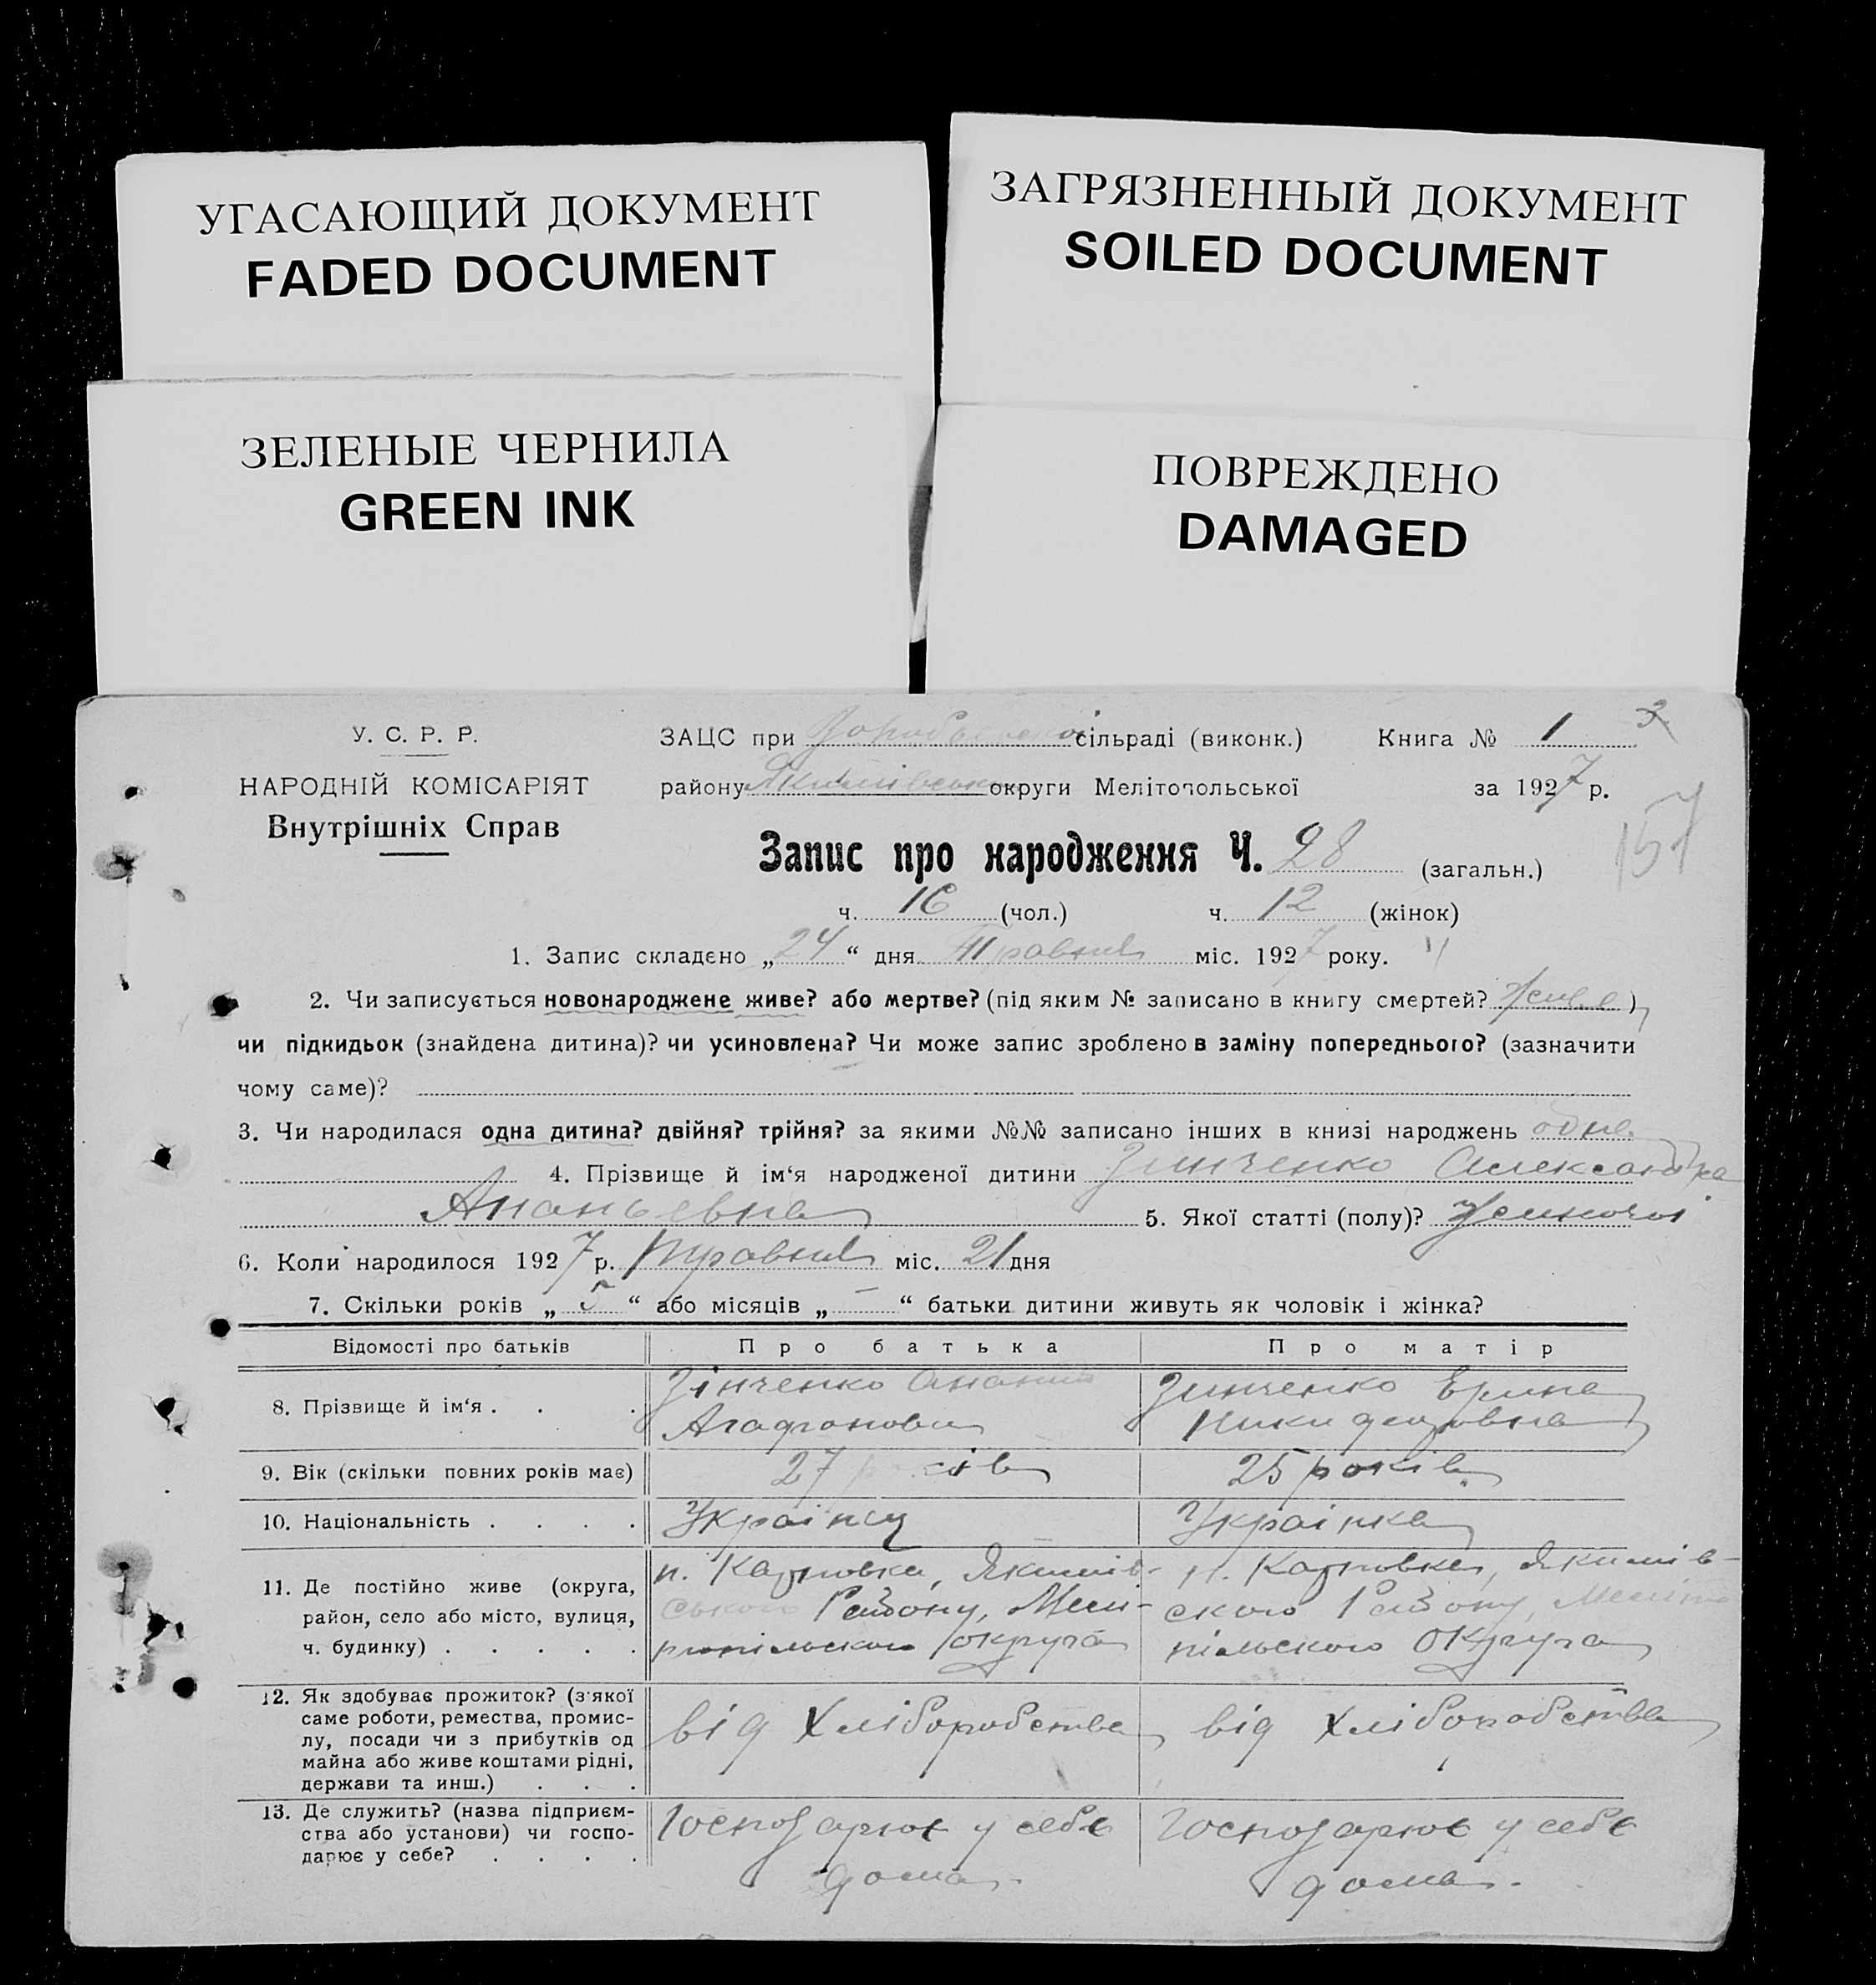 УГАСАЮЩИЙ ДОКУМЕНТ
FADED DOCUMENT
ЗАГРЯЗНЕННЫЙ ДОКУМЕНТ
SOILED DOCUMENT
ЗЕЛЕНЫЕ ЧЕРНИЛА
GREEN INK
ПОВРЕЖДЕНО
DAMAGED
У. С. Р. Р.
НАРОДНІЙ КОМІСАРІЯТ
Внутрішніх Справ
ЗАЦС при сільраді (виконк.) Книга № 1
району Якимівської округи Мелітопольської за 1927 р.
157
Запис про народження Ч. 28 (загальн.)
ч. 16 (чол.) ч. 12 (жінок)
1. Запис складєно „24“ дня Травня міс. 1927 року.
2. Чи записується новонароджене живе? або мертве? (під яким № записано в книгу смертей? живе)
чи підкидьок (знайдена дитина)? чи усиновлена? Чи може запис зроблено в заміну попереднього? (зазначити
чому саме)?
3. Чи народилася одна дитина? двійня? трійня? за якими №№ записано інших в книзі народжень одна
4. Прізвище й ім‘я народженої дитини Зинченко Александра
Ананьевна 5. Якої статті (полу)? Жиночої
6. Коли народилося 1927 р. Травня міс. 21 дня
7. Скільки років „5“ або місяців „—“ батьки дитини живуть як чоловік і жінка?
Відомості про батьків Про батька Про матір
8. Прізвище й ім‘я . . . Зінченко Ананий Зинченко Ерина
Агафонович Никифоровна
9. Вік (скільки повних років має) 27 років 25 років
10. Національність . . . . Українец Українка
11. Де постійно живе (округа, п. Карповка, Якимів- п. Карповка, Якимів-
район, село або місто, вулиця, ського Району, Мелі- ского Району, Меліто
ч. будинку) . . . . . топільского округа пільского Округа
12. Як здобуває прожиток? (з'якої
саме роботи, ремества, промис-
лу, посади чи з прибутків од від Хліборобства від Хліборобства
майна або живе коштами рідні,
держави та инш.) . . .
13. Де служить? (назва підприєм-
ства або установи) чи госпо- Господарює у себе Господарює у себе
дарює у себе? . . . . дома. дома.